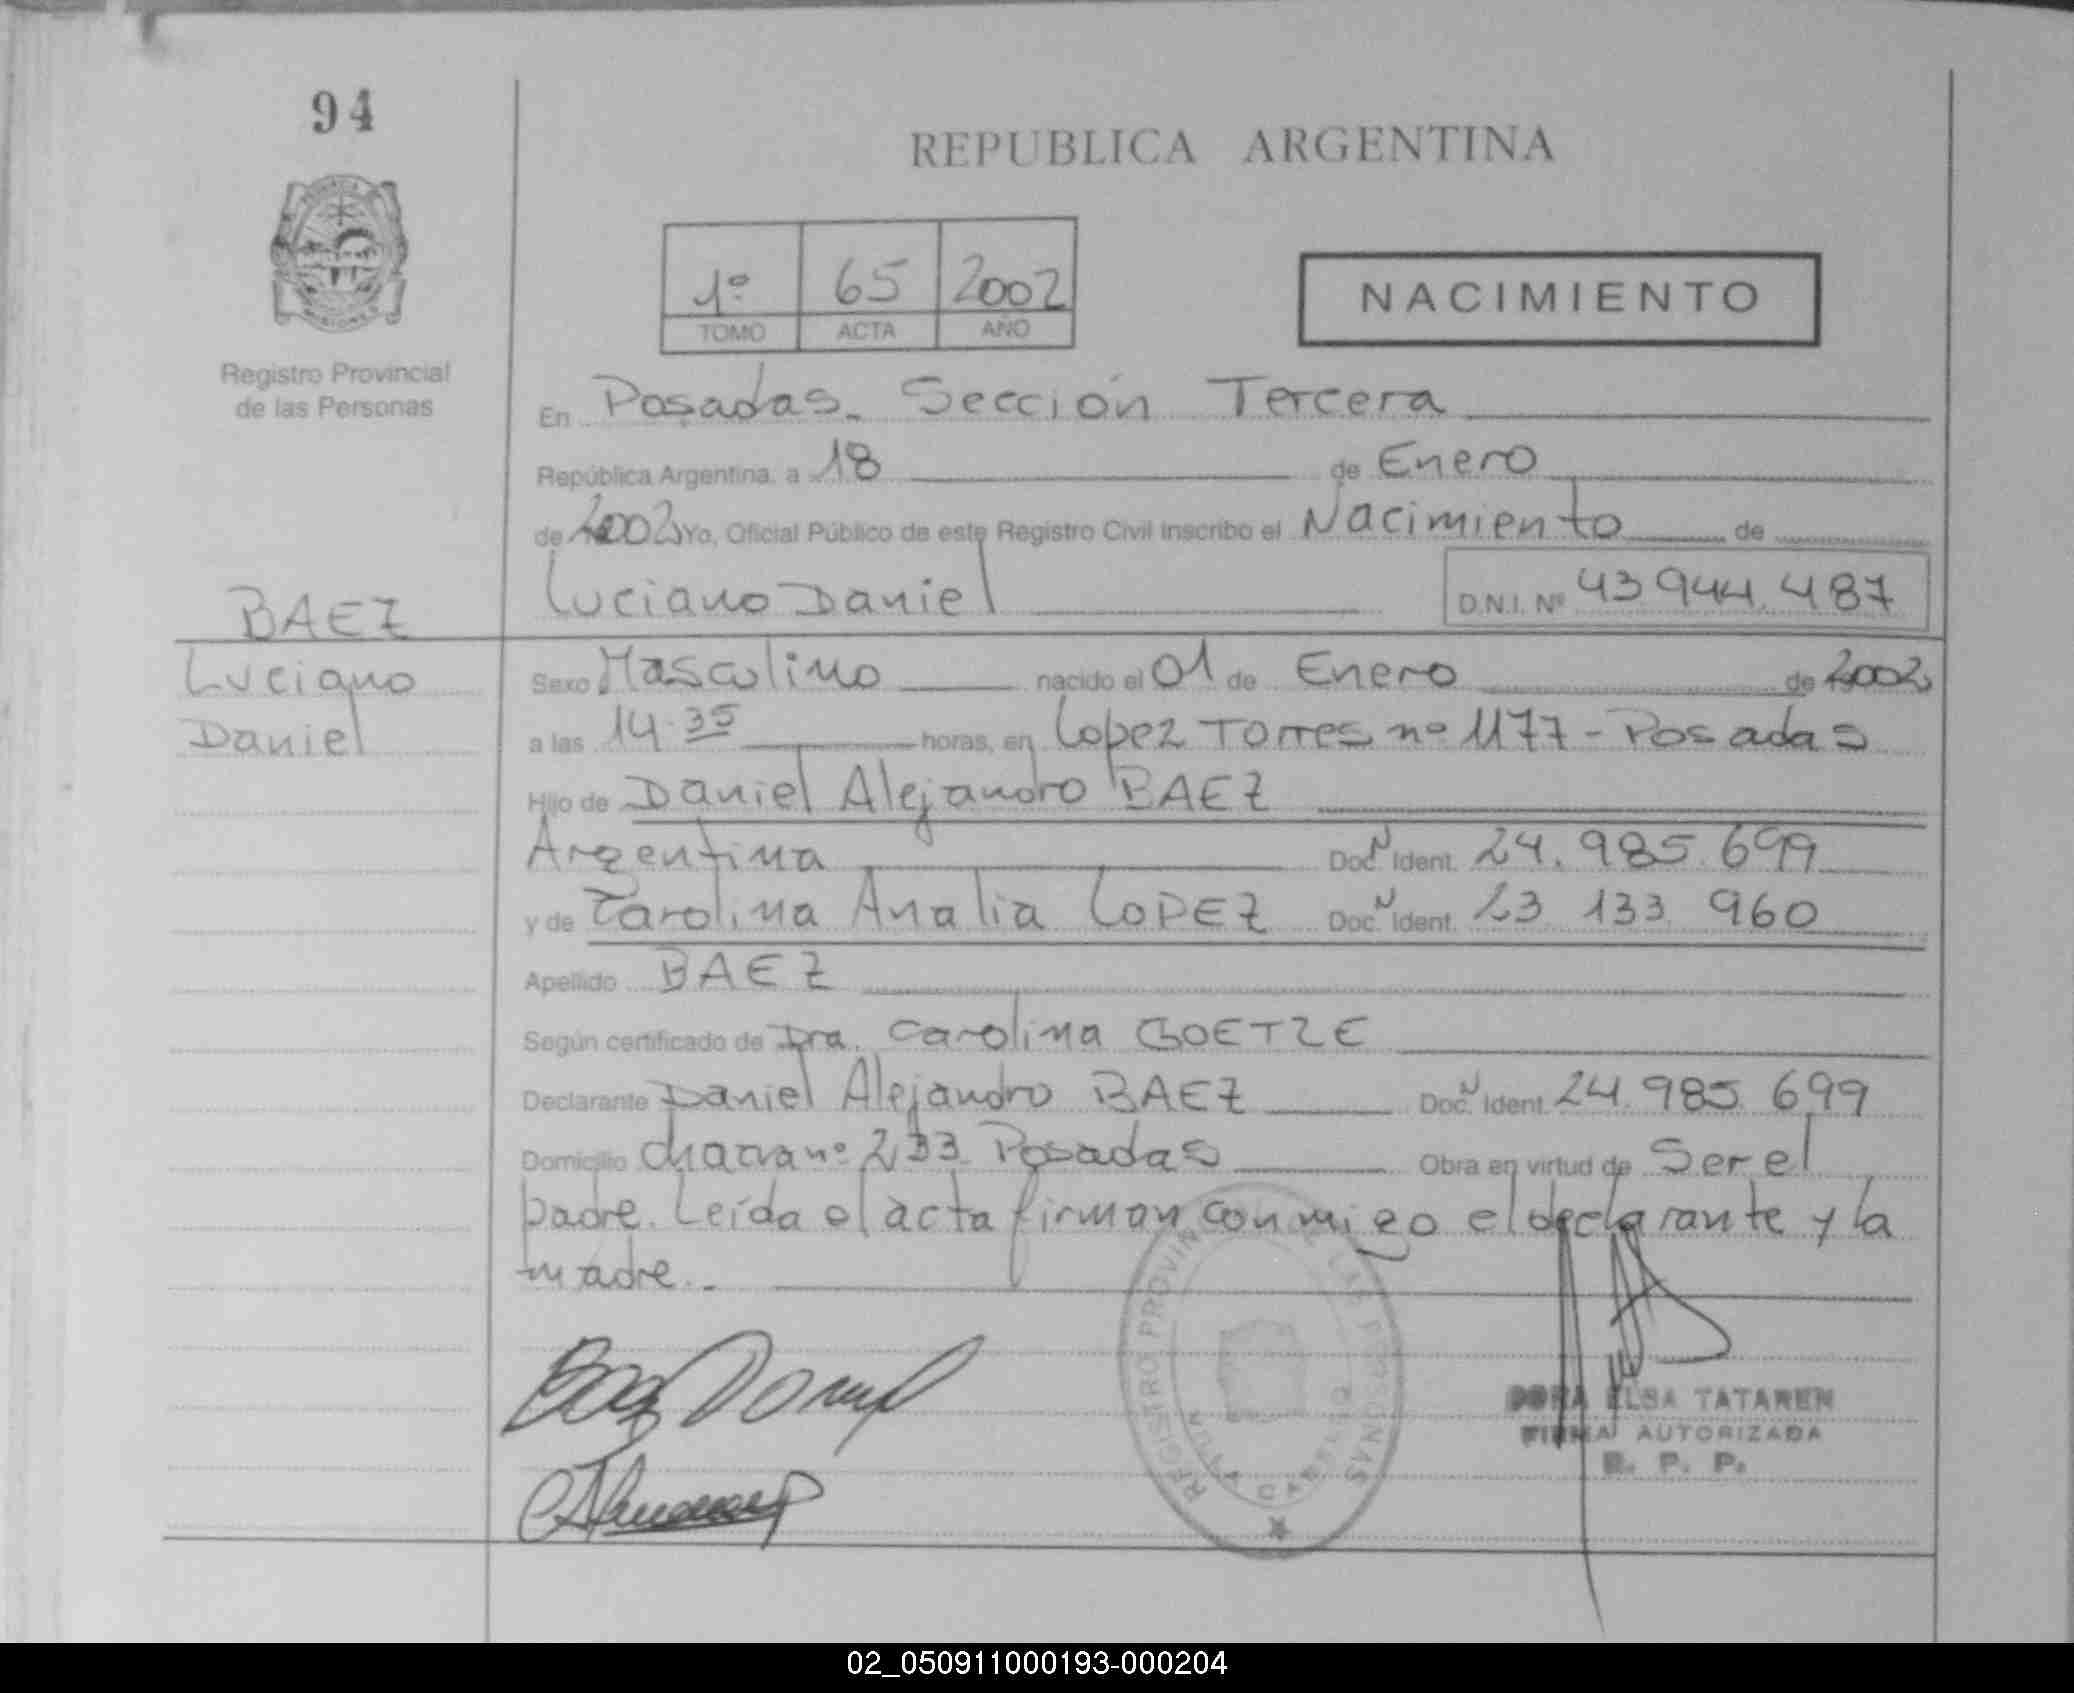 94
REPUBLICA ARGENTINA
1º 65 2002
TOMO ACTA AÑO
NACIMIENTO
Registro Provincial
de las Personas
En Posadas. Sección Tercera
República Argentina, a 18 de Enero
de 2002 Yo, Oficial Público de este Registro Civil inscribo el Nacimiento de
Luciano Daniel D.N.I. Nº 43.944.487
BAEZ
Luciano
Daniel
Sexo Masculino nacido el 01 de Enero de 2002
a las 14.35 horas, en Lopez Torres nº 1177 - Posadas
Hijo de Daniel Alejandro BAEZ
Argentina Doc. N Ident. 24.985.699
y de Carolina Analia LOPEZ Doc. N Ident. 23 133 960
Apellido BAEZ
Según certificado de Dra. Carolina GOETZE
Declarante Daniel Alejandro BAEZ Doc. N Ident. 24.985.699
Domicilio chacra nº 233 Posadas Obra en virtud de Ser el
padre. Leída el acta firman conmigo el declarante y la
madre.-
REGISTRO PROVINCIAL DE LAS PERSONAS
DORA ELSA TATAREN
FIRMA AUTORIZADA
R. P. P.
02_050911000193-000204